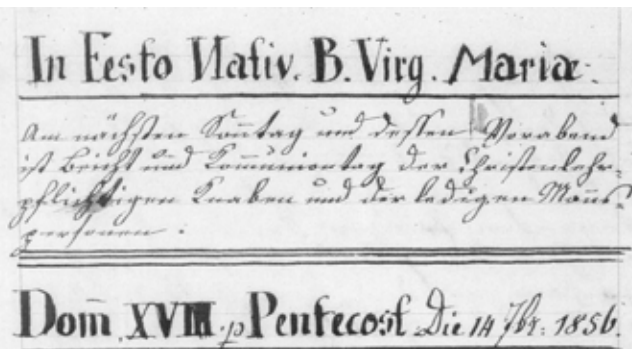 In Festo Nativ. B. Virg. Mariæ.
Am nächsten Soñtag und dessen Vorabend
ist Beicht und Com̄uniontag der Christenlehr-
pflichtigen Knaben und der ledigen Mañs-
personen.
Dom̄. XVIII. p Pentecost Die 14 7br: 1856.